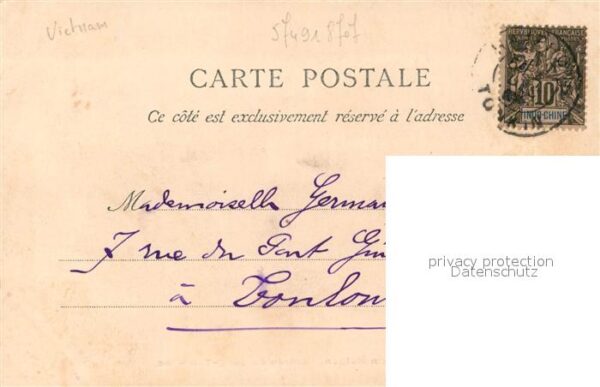 Vietnam
57491870J
CARTE POSTALE
Ce côté est exclusivement réservé à l'adresse
REPUBLIQUE FRANÇAISE
10
INDO-CHINE
TONKIN
Mademoiselle Germa
7 rue du Pont
à Toulon
privacy protection
Datenschutz